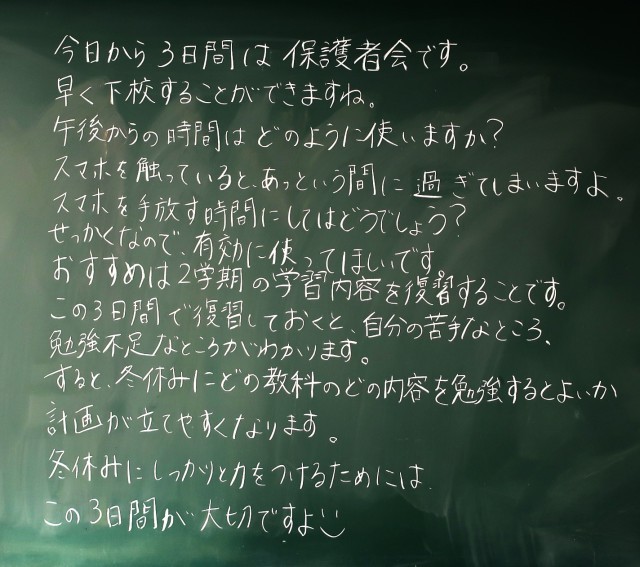 今日から3日間は保護者会です。
早く下校することができますね。
午後からの時間はどのように使いますか?
スマホを触っていると、あっという間に過ぎてしまいますよ。
スマホを手放す時間にしてはどうでしょう?
せっかくなので、有効に使ってほしいです。
おすすめは2学期の学習内容を復習することです。
この3日間で復習しておくと、自分の苦手なところ、
勉強不足なところがわかります。
すると、冬休みにどの教科のどの内容を勉強するとよいか
計画が立てやすくなります。
冬休みにしっかりと力をつけるためには
この3日間が大切ですよ